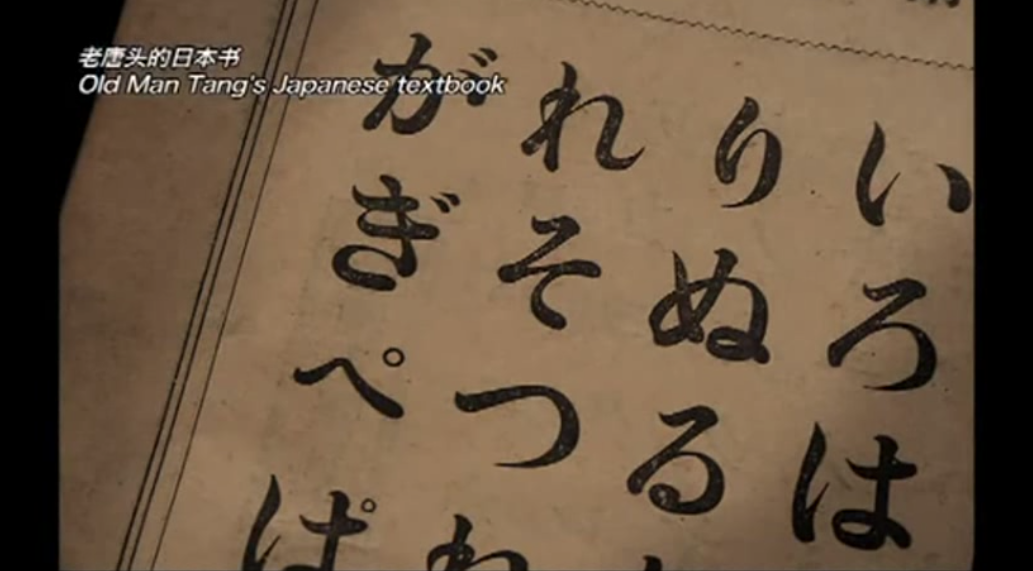 老唐头的日本书
Old Man Tang's Japanese textbook
いろは
りぬる
れそつ
がぎぺぱ